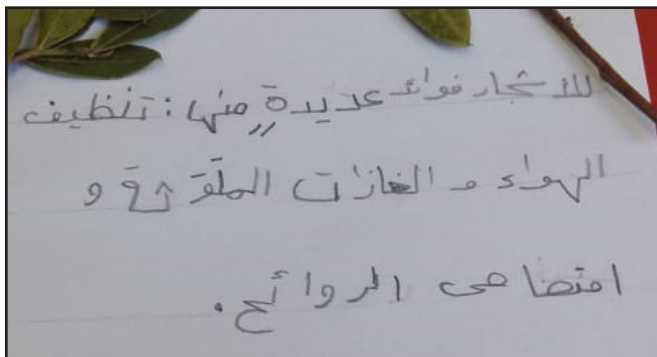 للأشجار فوائد عديدةٍ منها: تنظيف
الهواء و الغازات الملوّثة و
امتصاص الروائح.